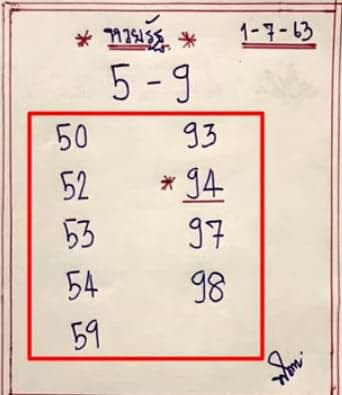 * หวยรัฐ * 1-7-63
5 - 9
50 93
52 * 94
53 97
54 98
59